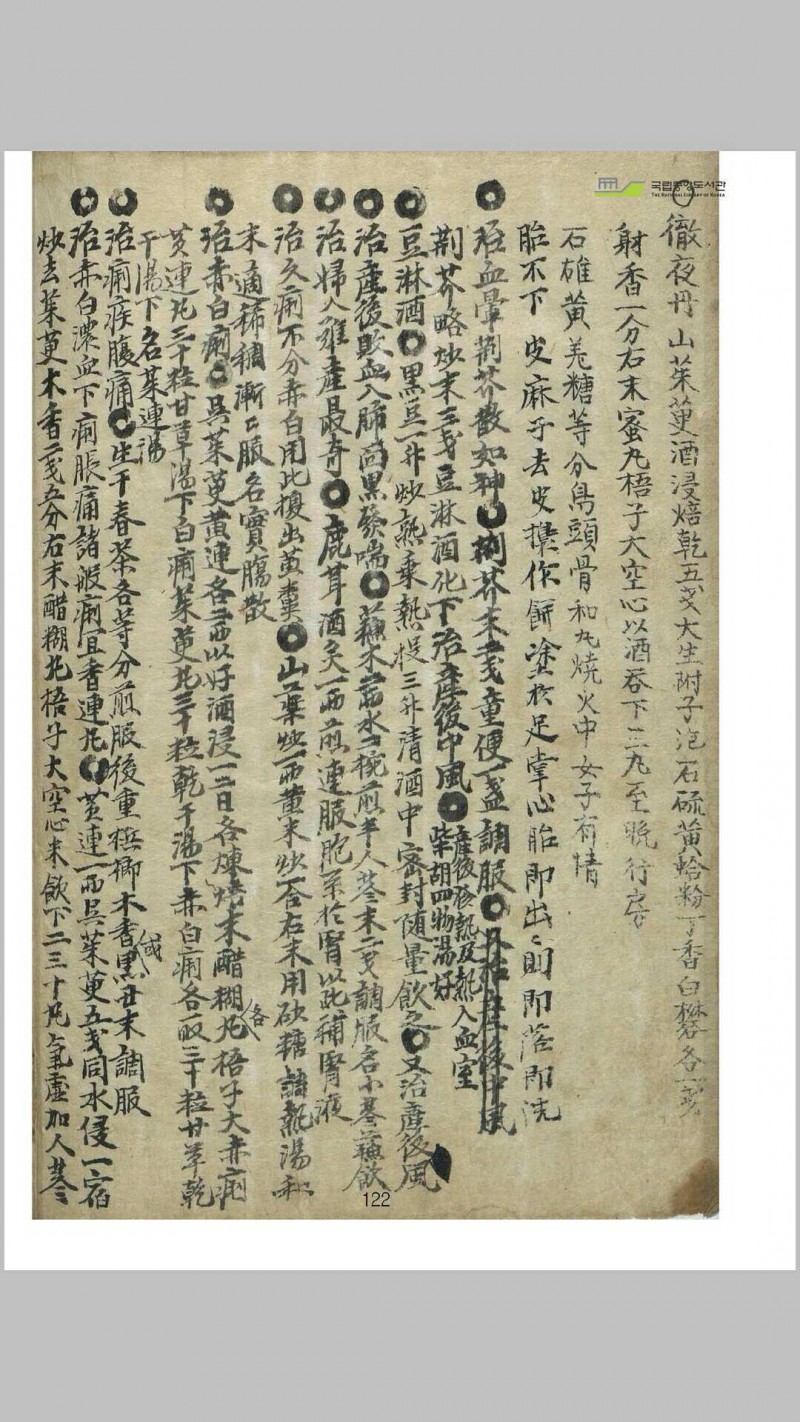 徹夜丹 山茱萸酒浸焙乾五戔大生附子泡石硫黃蛤粉丁香白礬各一戔
射香一分右末蜜丸梧子大空心以酒吞下二丸至晩行房
石雄黃 羌糖等分鳥頭骨和丸燒火中女子有情
胎不下 皮麻子去皮 作餠塗於足掌心胎卽出出則卽落卽洗
治血暈荊芥散如神 荊芥末二戔童便一盞調服
荊芥略炒末三戔豆淋酒化下治産後中風 産後發熱及熱入血室
柴胡四物湯好
豆淋酒 黑豆一升炒熟乘熱投三升淸酒中密封隨量飮之 又治産後風
治産後敗血入肺面黑發喘 蘇木二兩水二椀煎半人蔘末二戔調服名小蔘蘇飮
治婦人難産最奇 鹿茸酒炙一兩煎連服胞系於腎以此補腎液
治久痢不分赤白用此 出黃糞 山藥炒一兩黃米炒一合右末用砂糖調熱湯和
末適稀稠漸漸服名實腸散
治赤白痢 吳茱萸黃連各二兩以好酒浸三日各煉焙末醋糊丸梧子大赤痢
各
黃連丸三十粒甘草湯下白痢茱萸丸三十粒乾干湯下赤白痢各取三十粒甘草乾
干湯下名茱連湯
治痢疾腹痛 生干春茶各等分煎服後重檳榔木香黑丑末調服
或
治赤白濃血下痢脹痛諸般痢宜香連丸 黃連一兩吳茱萸五戔同水侵一宿
炒去茱萸木香二戔五分右末醋糊丸梧子大空心米飮下二三十丸氣虛加人蔘
국립중앙도서관
THE NATIONAL LIBRARY OF KOREA
122